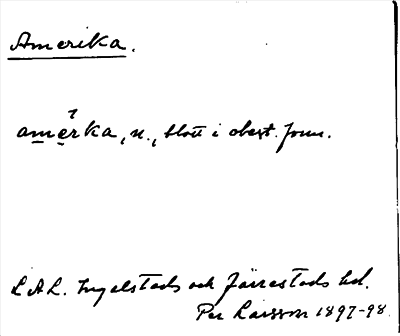 Amerika.
amerka, n., blott i obest. form.
L A L. Ingelstads och Järrestads hd.
Per Larsson 1897-98.